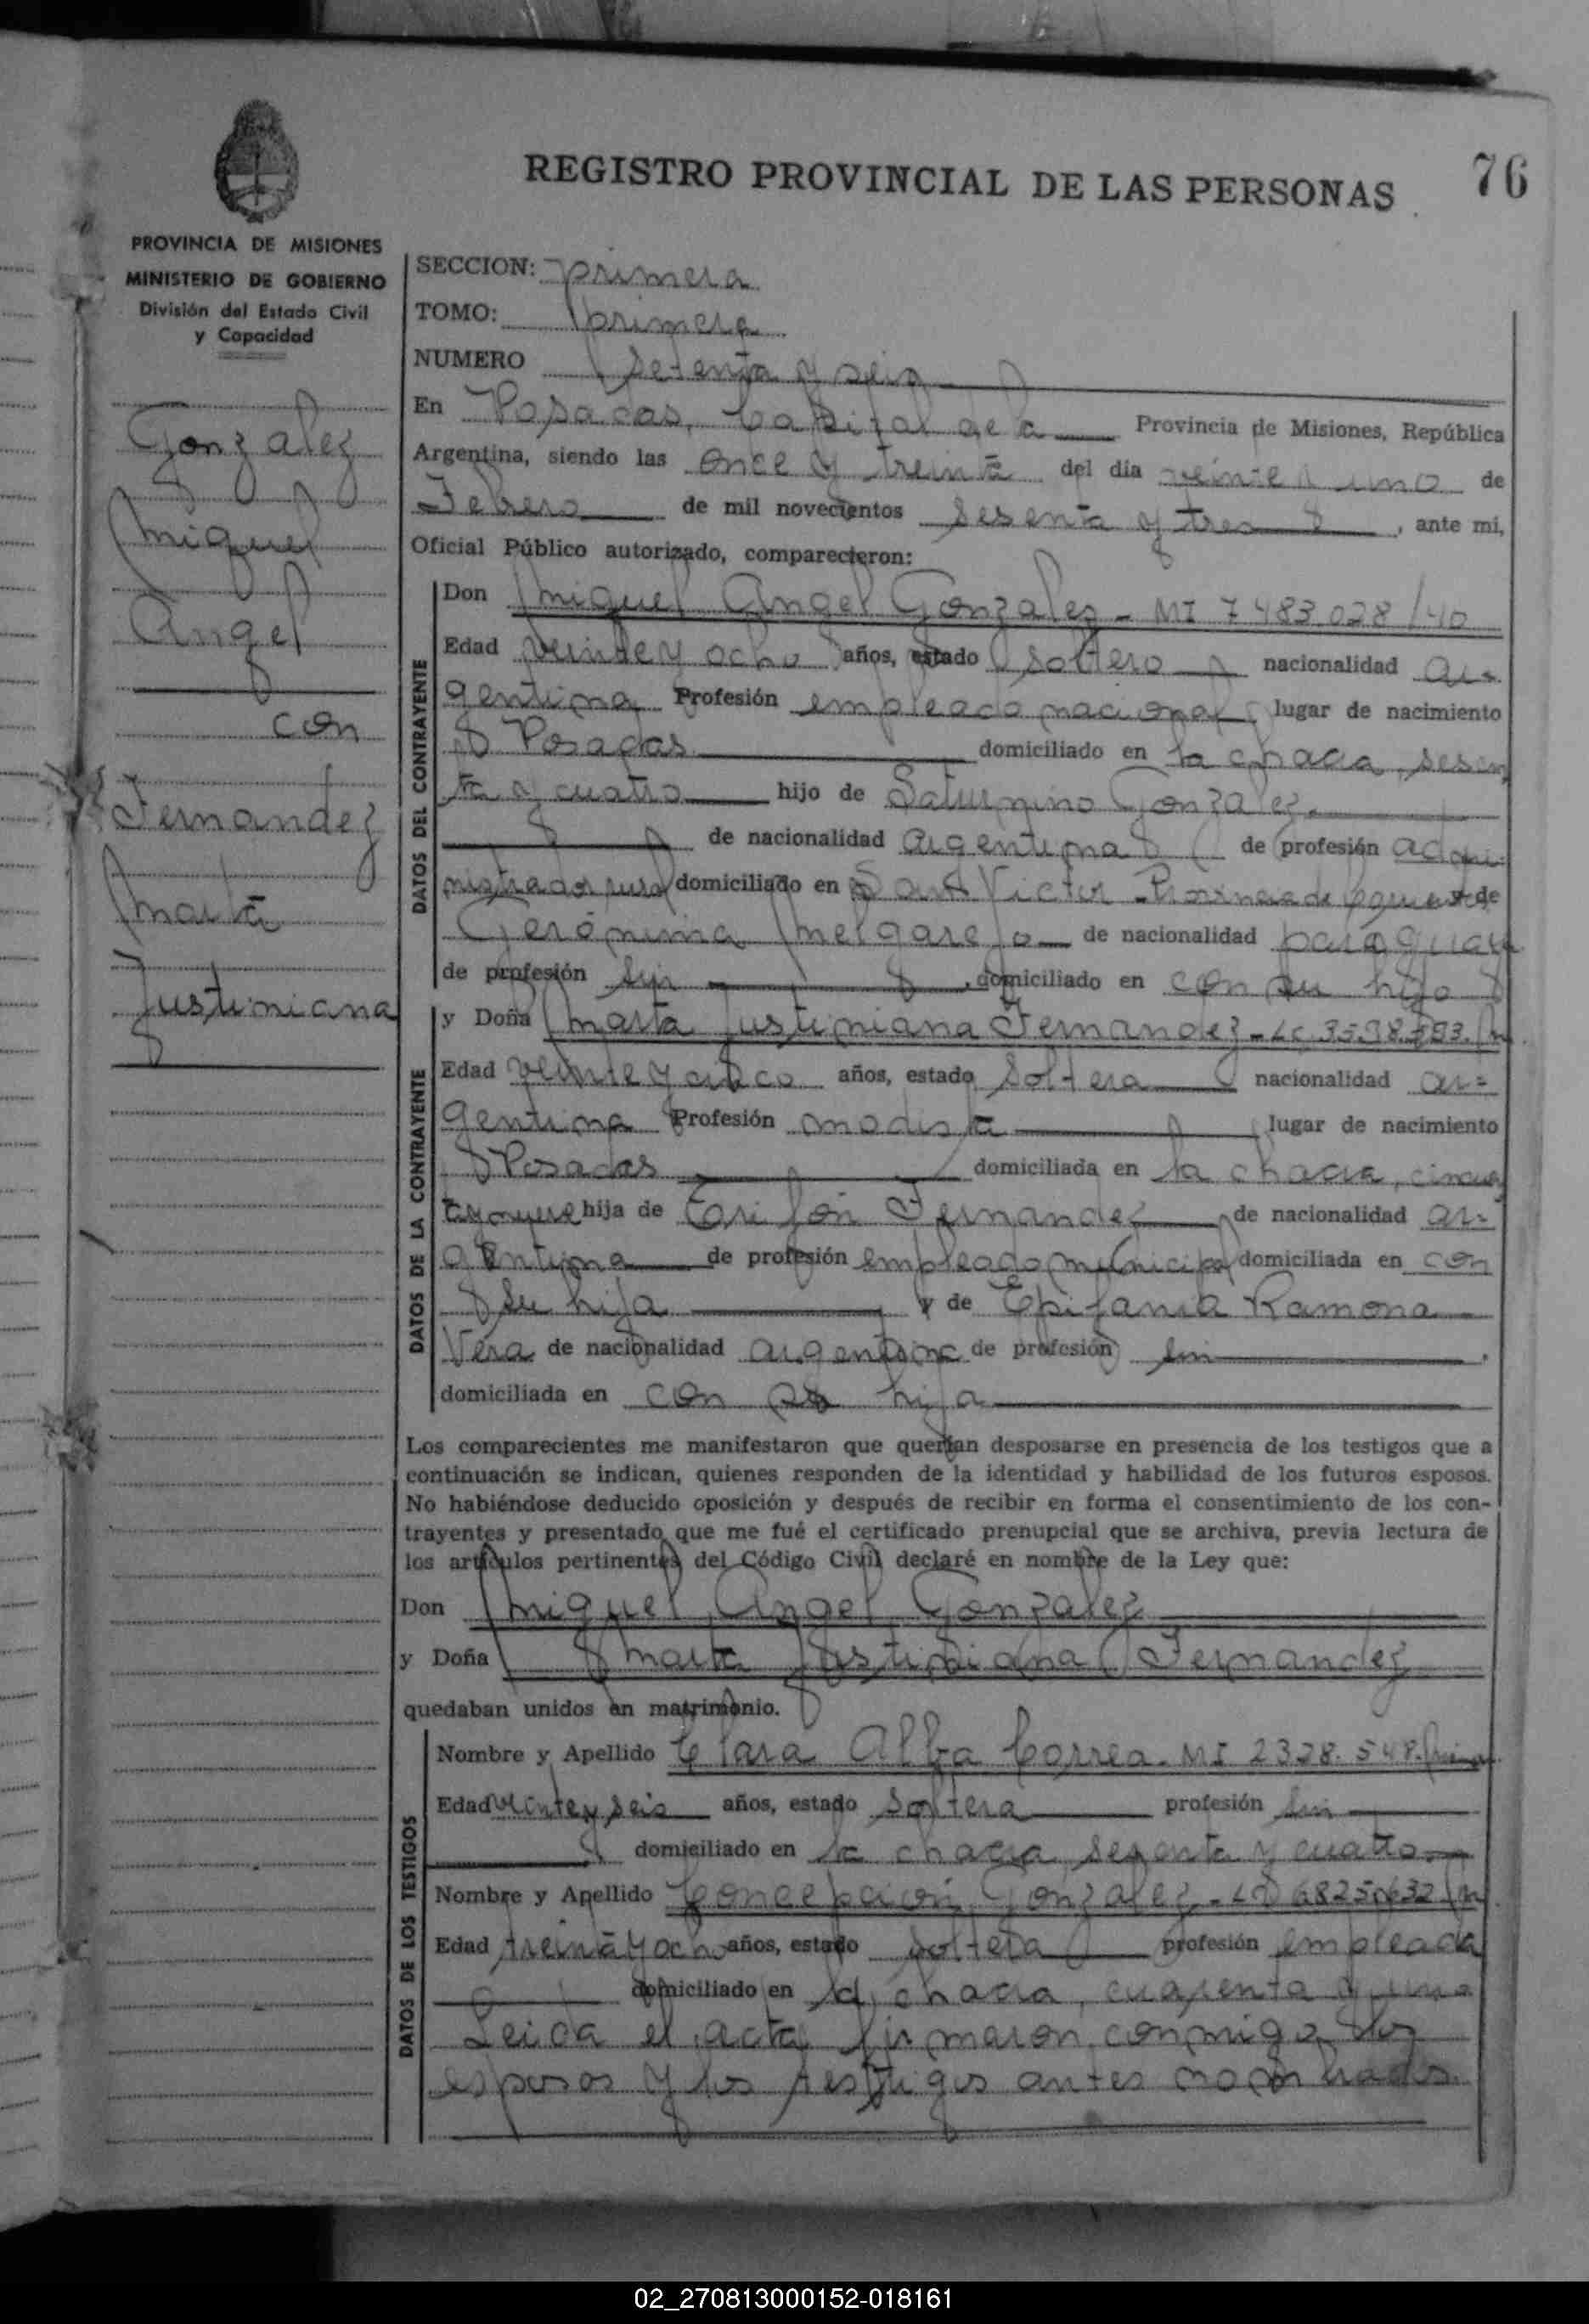 REGISTRO PROVINCIAL DE LAS PERSONAS
76
PROVINCIA DE MISIONES
MINISTERIO DE GOBIERNO
División del Estado Civil
y Capacidad
Gonzalez
Miguel
Angel
con
Fernandez
Marta
Justiniana
SECCION: primera
TOMO: primera
NUMERO setenta y seis
En Posadas, Capital de la Provincia de Misiones, República
Argentina, siendo las once y treinta del día veinte y uno de
Febrero de mil novecientos sesenta y tres, ante mi,
Oficial Público autorizado, comparecieron:
DATOS DEL CONTRAYENTE
Don Miguel Angel Gonzalez - MI 7483.028/40
Edad veinte y ocho años, estado soltero nacionalidad ar-
gentina Profesión empleado nacional lugar de nacimiento
Posadas domiciliado en la chacra, sesen
ta y cuatro hijo de Saturnino Gonzalez
de nacionalidad argentina de profesión admi-
nistrador rural domiciliado en San Victor - Provincia de y de
Gerónima Melgarejo de nacionalidad paraguay
de profesión sin, domiciliado en con su hijo
DATOS DE LA CONTRAYENTE
y Doña Marta Justiniana Fernandez - Lc.
Edad veinte y cinco años, estado soltera nacionalidad ar=
gentina Profesión modista lugar de nacimiento
Posadas domiciliada en la chacra, cincuen
hija de Fernandez de nacionalidad ar=
gentina de profesión empleado municipal domiciliada en con
su hija y de Epifania Ramona
Vera de nacionalidad argentina de profesión sin.
domiciliada en con su hija
Los comparecientes me manifestaron que querían desposarse en presencia de los testigos que a
continuación se indican, quienes responden de la identidad y habilidad de los futuros esposos.
No habiéndose deducido oposición y después de recibir en forma el consentimiento de los con-
trayentes y presentado que me fué el certificado prenupcial que se archiva, previa lectura de
los artículos pertinentes del Código Civil declaré en nombre de la Ley que:
Don Miguel Angel Gonzalez
y Doña Marta Justiniana Fernandez
quedaban unidos en matrimonio.
DATOS DE LOS TESTIGOS
Nombre y Apellido Clara Alba Correa - MI 2328.548.
Edad veinte y seis años, estado soltera profesión sin
domiciliado en la chacra sesenta y cuatro
Nombre y Apellido Concepcion Gonzalez
Edad treinta y ocho años, estado soltera profesión empleada
domiciliado en la chacra, cuarenta y uno
Leida el acta firmaron conmigo los
esposos y los testigos antes nombrados.
02_270813000152-018161